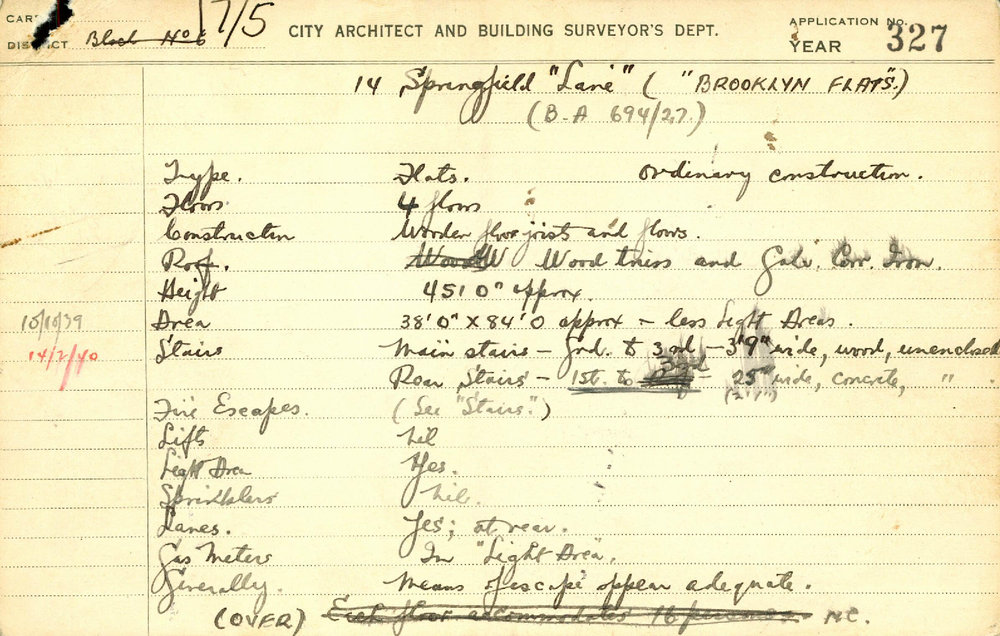 CAR
DISTRICT Block No 6 17/5 CITY ARCHITECT AND BUILDING SURVEYOR'S DEPT. APPLICATION No. YEAR 327
14 Springfield "Lane" ( "BROOKLYN FLATS".)
(B.A 694/27.)
Type. Flats. Ordinary construction.
Floors 4 floors
Construction Wooden floor joists and floors.
Roof. Wood truss and Galv. Corr. Iron.
Height 45'0" approx.
10/10/39 Area 38'0" X 84'0 approx - less Light Areas.
14/2/40 Stairs Main stairs - Grd. to 3rd - 3'9" wide, wood, unenclosed
Rear Stairs - 1st. to 3rd - 25" wide, concrete, " .
(2'1")
Fire Escapes. (See "Stairs".)
Lifts Nil
Light Area Yes.
Sprinklers Nil.
Lanes. Yes; at rear.
Gas Meters In "Light Area".
Generally. Means of escape appear adequate.
(OVER) Each floor accommodates 16 persons. MC.